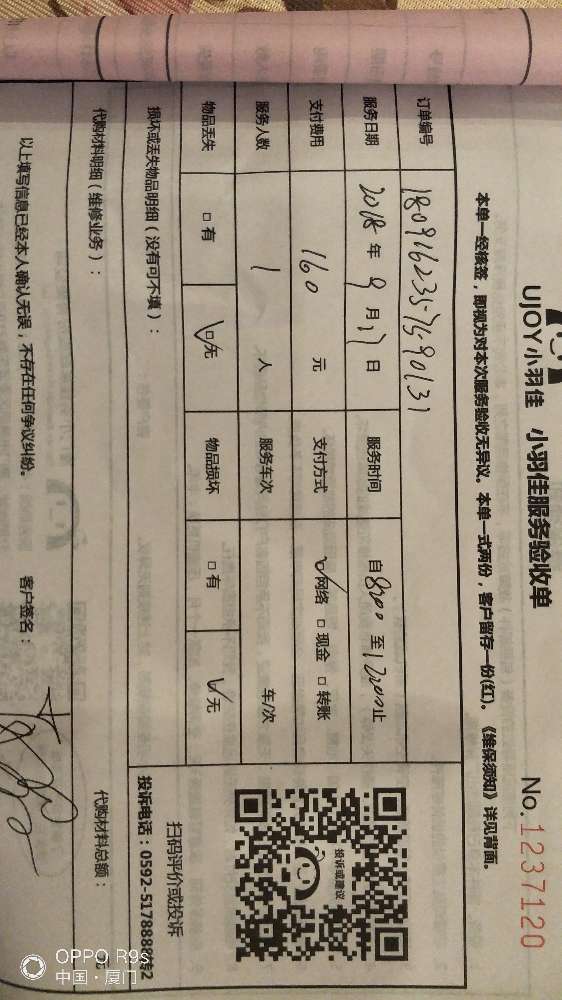 UJOY小羽佳 小羽佳服务验收单
No.1237120
本单一经核签，即视为对本次服务验收无异议。本单一式两份，客户留存一份(红)。《维保须知》详见背面。
订单编号
服务日期 2018年9月17日 服务时间 自8:00至12:00止
支付费用 160元 支付方式 ☑网络 □现金 □转账
服务人数 1人 服务车次 车/次
物品丢失 □有 ☑无 物品损坏 □有 ☑无
损坏或丢失物品明细（没有可不填）：
代购材料明细（维修业务）：
代购材料总额： 元
以上填写信息已经本人确认无误，不存在任何争议纠纷。 客户签名：
投诉或建议
扫码评价或投诉
投诉电话：0592-5178888转2
OPPO R9s
中国·厦门